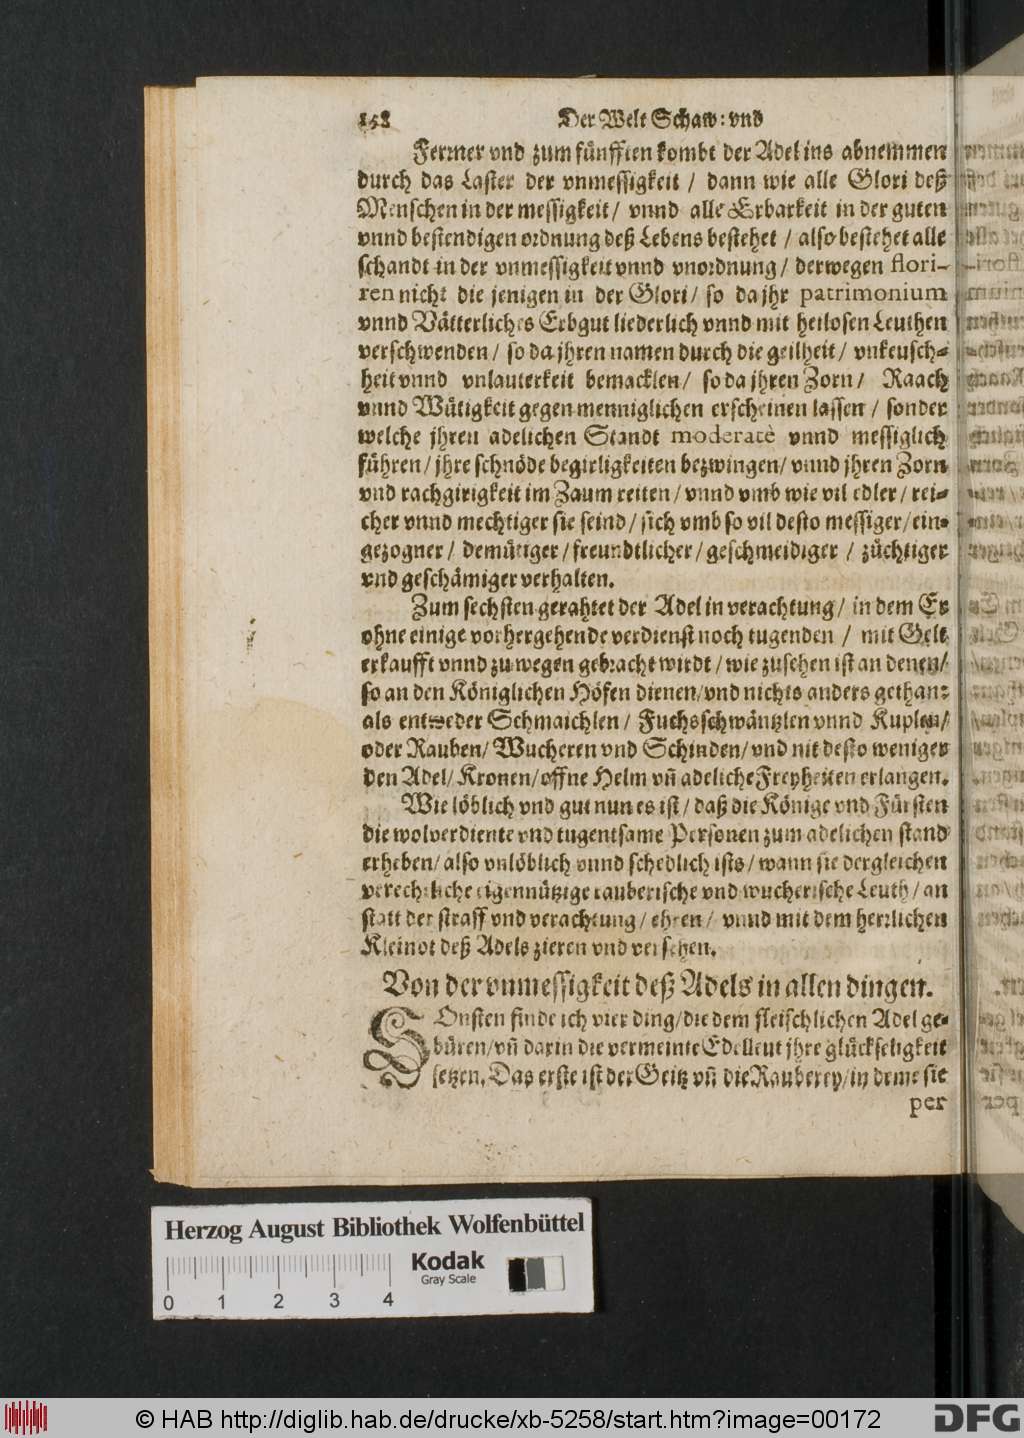 158 Der Welt Schaw: vnd
Ferrner vnd zum fünfften kombt der Adel ins abnemmen
durch das Laster der vnmessigkeit / dann wie alle Glori deß
Menschen in der messigkeit / vnnd alle Erbarkeit in der guten
vnnd bestendigen ordnung deß Lebens bestehet / also bestehet alle
schandt in der vnmessigkeit vnnd vnordnung / derwegen flori-
ren nicht die jenigen in der Glori / so da jhr patrimonium
vnnd Vätterliches Erbgut liederlich vnnd mit heilosen Leuthen
verschwenden / so da jhren namen durch die geilheit / vnkeusch-
heit vnnd vnlauterkeit bemacklen / so da jhren Zorn / Raach
vnnd Wütigkeit gegen menniglichen erscheinen lassen / sonder
welche jhren adelichen Standt moderatè vnnd messiglich
führen / jhre schnöde begirligkeiten bezwingen / vnnd jhren Zorn
vnd rachgirigkeit im Zaum reiten / vnnd vmb wie vil edler / rei-
cher vnnd mechtiger sie seind / sich vmb so vil desto messiger / ein-
gezogner / demütiger / freundtlicher / geschmeidiger / züchtiger
vnd geschämiger verhalten.
Zum sechsten gerahtet der Adel in verachtung / in dem Er
ohne einige vorhergehende verdienst noch tugenden / mit Gelt
erkaufft vnnd zuwegen gebracht wirdt / wie zusehen ist an denen /
so an den Königlichen Höfen dienen / vnd nichts anders gethan:
als entweder Schmaichlen / Fuchsschwäntzlen vnnd Kuplen /
oder Rauben / Wucheren vnd Schinden / vnd nit desto weniger
den Adel / Kronen / offne Helm vñ adeliche Freyheiten erlangen.
Wie löblich vnd gut nun es ist / daß die Könige vnd Fürsten
die wolverdiente vnd tugentsame Personen zum adelichen stand
erheben / also vnlöblich vnnd schedlich ists / wann sie dergleichen
verechtliche eigennützige rauberische vnd wucherische Leuth / an
statt der straff vnd verachtung / ehren / vnnd mit dem herrlichen
Kleinot deß Adels zieren vnd versehen.
Von der vnmessigkeit deß Adels in allen dingen.
SOnsten finde ich vier ding / die dem fleischlichen Adel ge-
büren / vñ darin die vermeinte Edelleut jhre glückseligkeit
setzen. Das erste ist der Geitz vñ die Rauberey / in deme sie
per
Herzog August Bibliothek Wolfenbüttel
Kodak
Gray Scale
0 1 2 3 4
© HAB http://diglib.hab.de/drucke/xb-5258/start.htm?image=00172
DFG